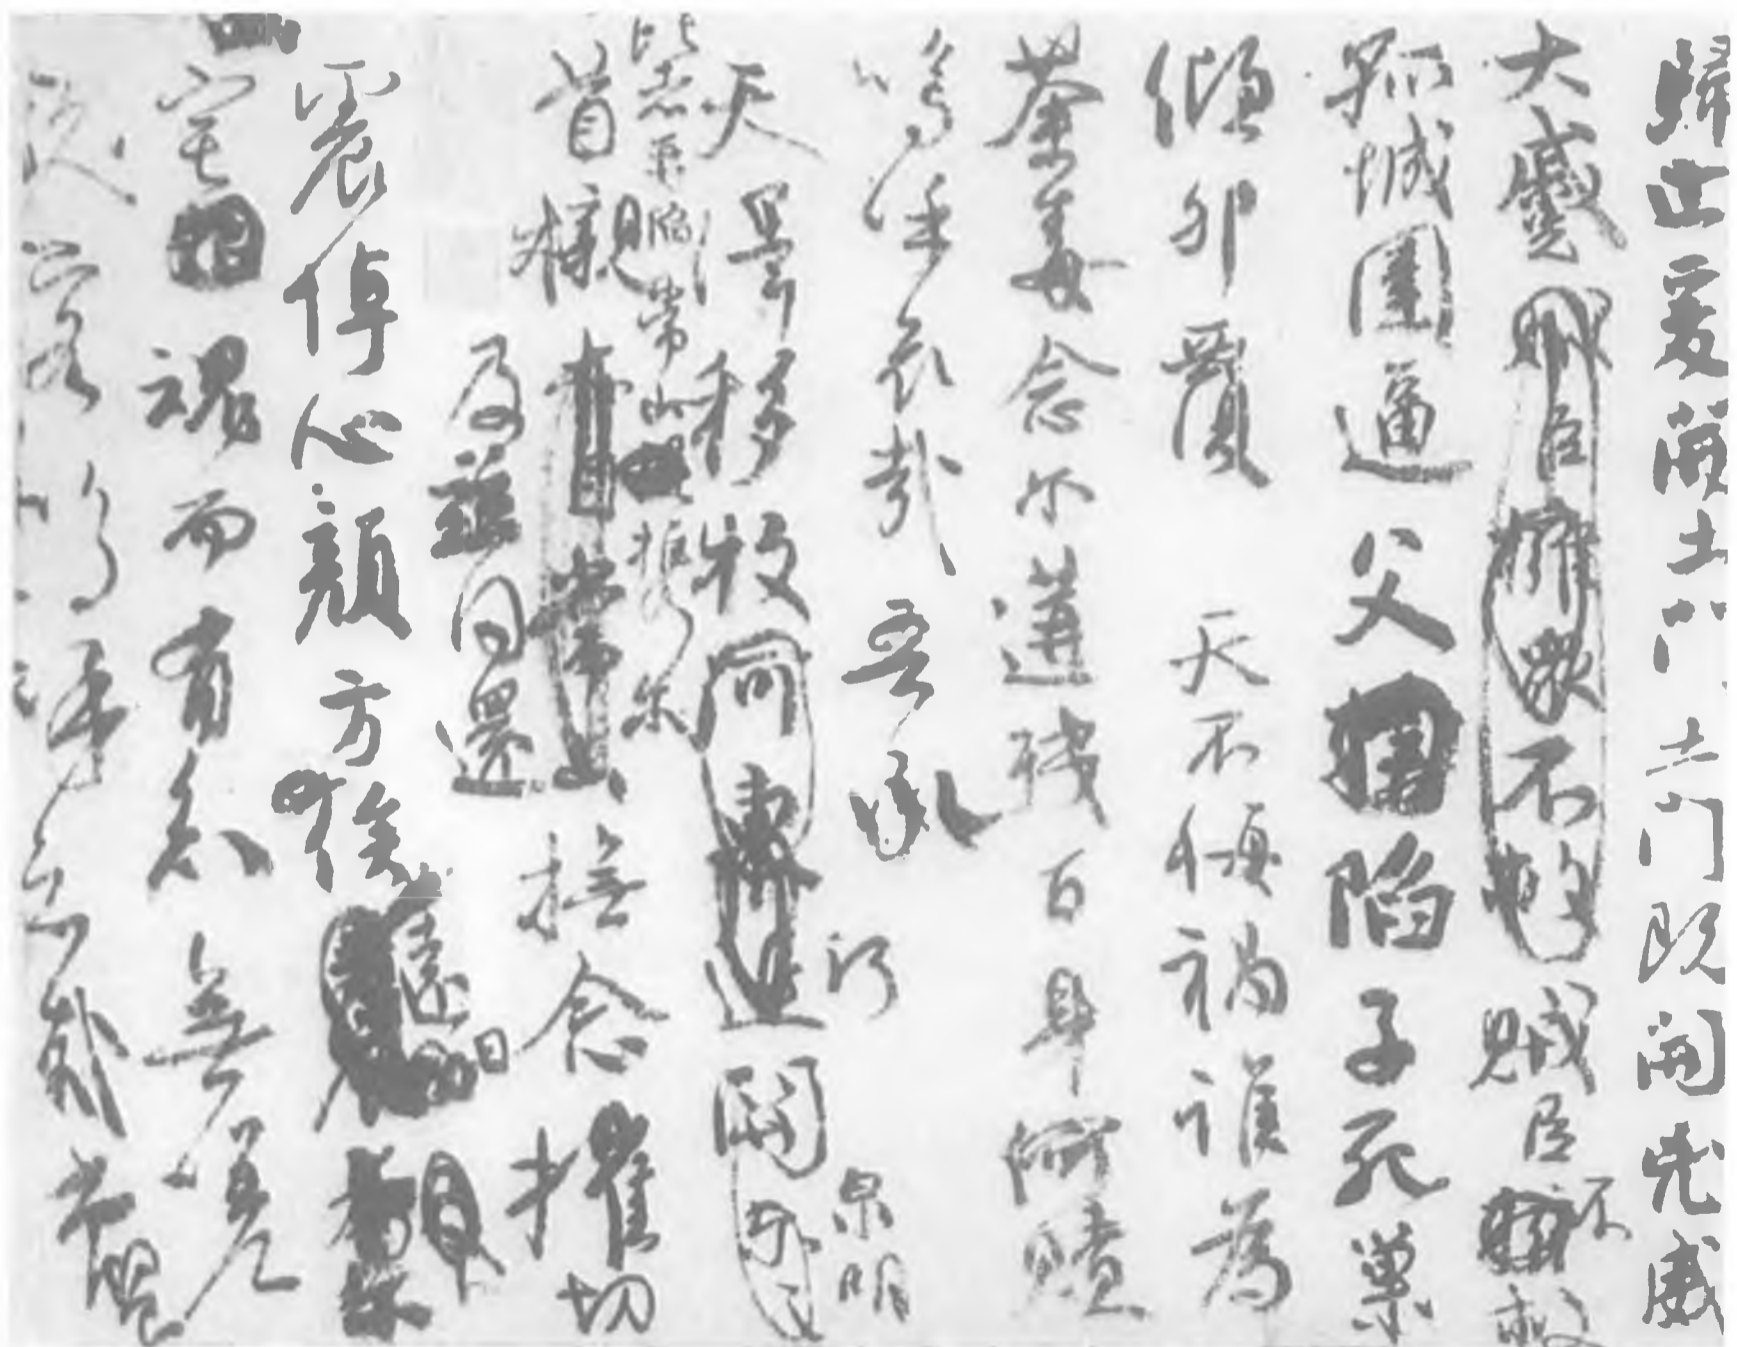 歸止爰開土門土門既開兇威
大蹙賊臣擁衆不救賊臣不救
孤城圍逼父陷子死巢
傾卵覆天不悔禍誰為
荼毒念爾遘殘百身何贖
嗚乎哀哉吾承
天澤移牧河關
泉明
比者再陷常山提
爾
首櫬及茲同還
撫念摧切
震悼心顏方俟
遠日
卜
宅魂而有知無嗟
久客嗚呼哀哉尚饗